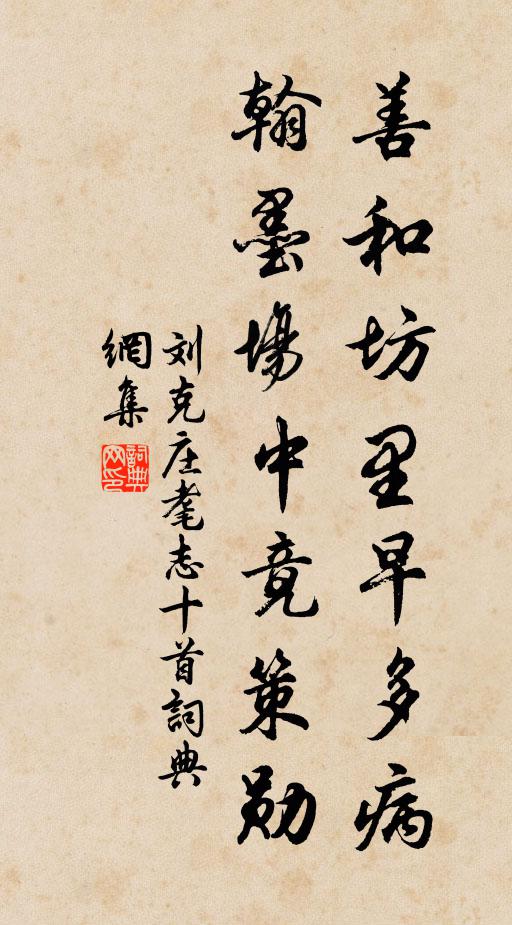 善和坊里早多病
翰墨場中竟策勋
刘克庄耄志十首詞典
網集
詞典网印